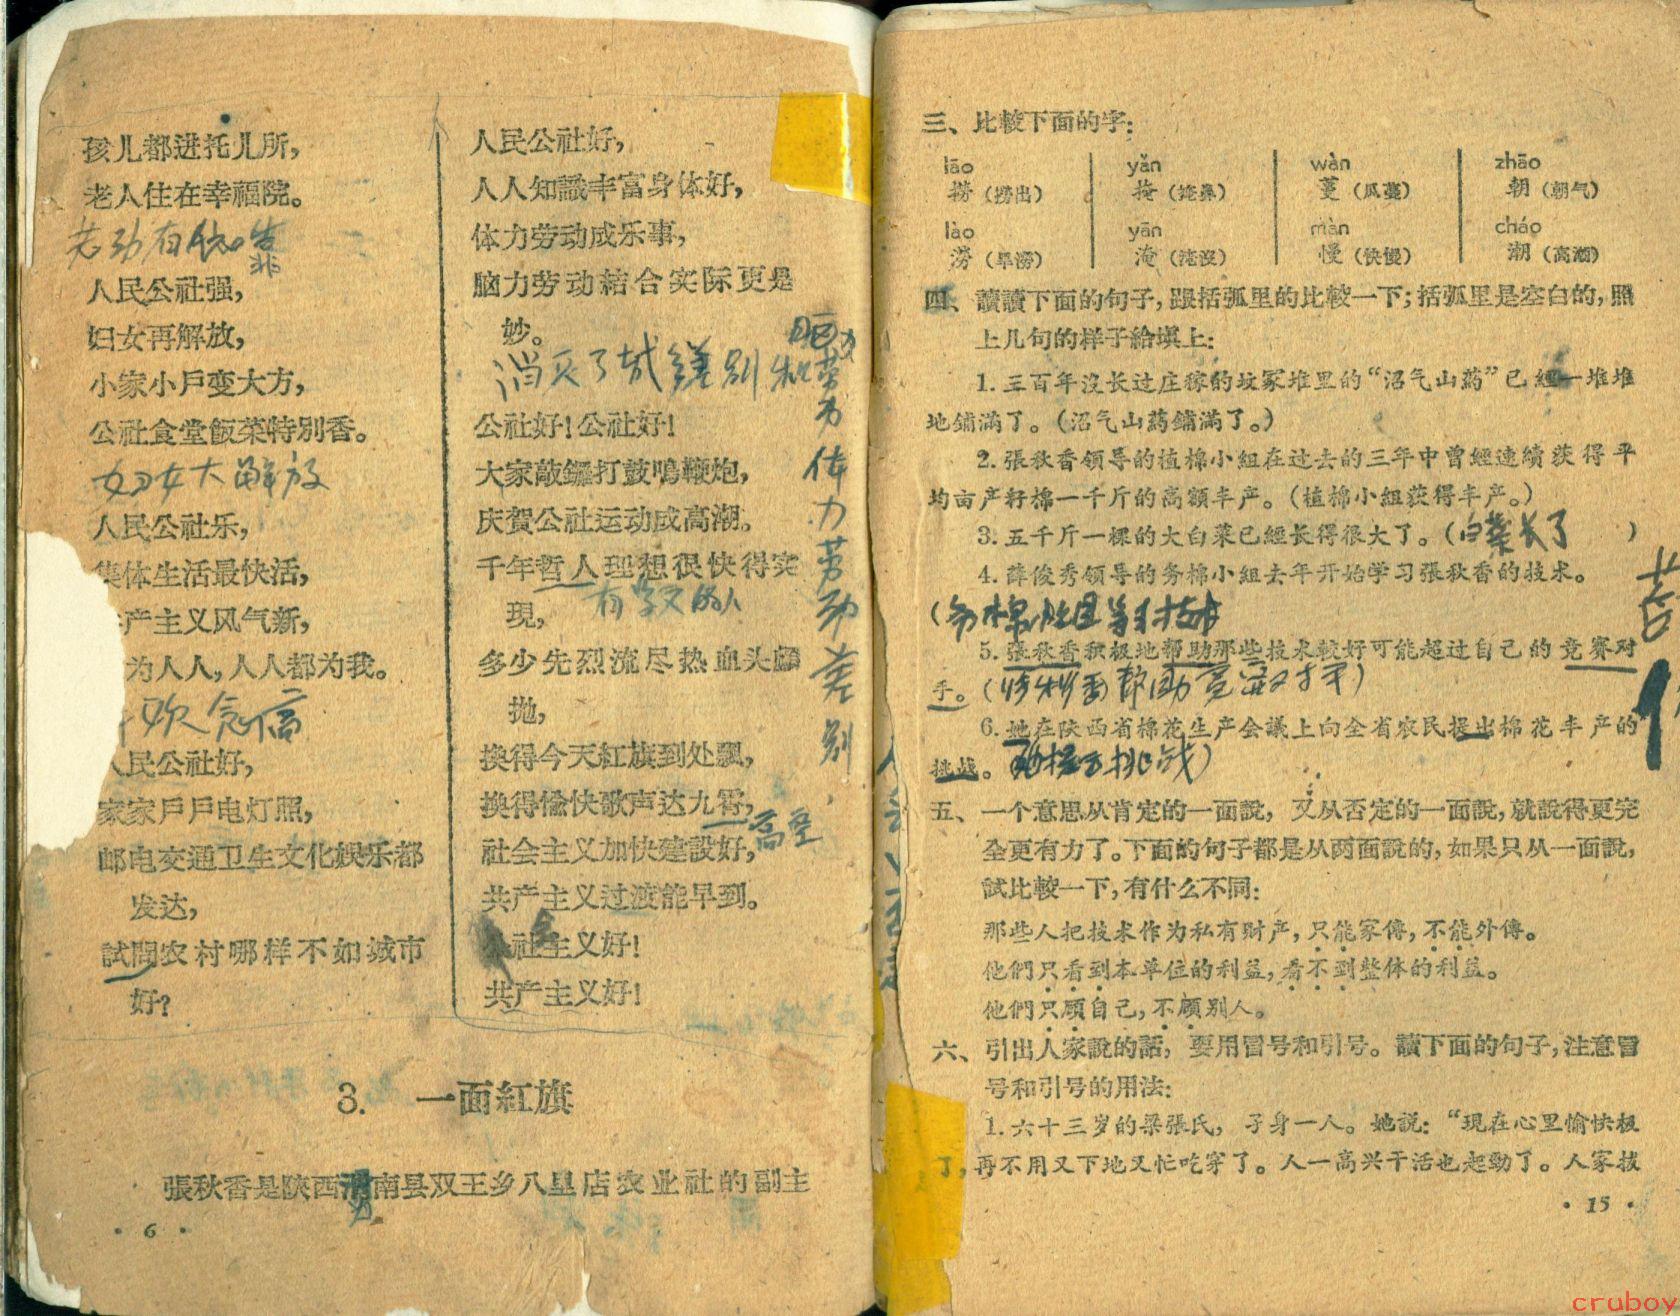 孩儿都进托儿所，
老人住在幸福院。
老幼有依靠
人民公社强，
妇女再解放，
小家小戶变大方，
公社食堂飯菜特別香。
妇女大解放
人民公社乐，
集体生活最快活，
产主义风气新，
为人人，人人都为我。
人民公社好，
家家戶戶电灯照，
邮电交通卫生文化娱乐都
发达，
試問农村哪样不如城市
好？
人民公社好，
人人知識丰富身体好，
体力劳动成乐事，
脑力劳动結合实际更是
妙。
消灭了城乡差别和
脑力劳力体力劳动差别
公社好！公社好！
大家敲鑼打鼓鳴鞭炮，
庆賀公社运动成高潮。
千年哲人理想很快得实
現，
有学文的人
多少先烈流尽热血头顱
抛，
換得今天紅旗到处飄，
換得愉快歌声达九霄，
高空
社会主义加快建設好，
共产主义过渡能早到。
公社主义好！
共产主义好！
3. 一面紅旗
張秋香是陝西渭南县双王乡八里店农业社的副主
· 6 ·
三、比較下面的字：
lāo yǎn wàn zhāo
捞（捞出） 掩（掩鼻） 蔓（瓜蔓） 朝（朝气）
lào yān màn cháo
涝（旱涝） 淹（淹沒） 慢（快慢） 潮（高潮）
四、讀讀下面的句子，跟括弧里的比較一下；括弧里是空白的，照
上几句的样子給填上：
1. 三百年沒长过庄稼的坟冢堆里的“沼气山葯”已經一堆堆
地鋪滿了。（沼气山葯鋪滿了。）
2. 張秋香领导的植棉小組在过去的三年中曾經連續获得平
均亩产籽棉一千斤的高額丰产。（植棉小組获得丰产。）
3. 五千斤一棵的大白菜已經长得很大了。（白菜长了）
4. 薛俊秀领导的务棉小組去年开始学习張秋香的技术。
（务棉小组学习技术
5. 張秋香积极地帮助那些技术較好可能超过自己的竞賽对
手。（张秋香帮助竞赛对手）
6. 她在陝西省棉花生产会議上向全省农民提出棉花丰产的
挑战。（她提出挑战）
五、一个意思从肯定的一面說，又从否定的一面說，就說得更完
全更有力了。下面的句子都是从两面說的，如果只从一面說，
試比較一下，有什么不同：
那些人把技术作为私有财产，只能家傳，不能外傳。
他們只看到本单位的利益，看不到整体的利益。
他們只顾自己，不顾別人。
六、引出人家說的話，要用冒号和引号。讀下面的句子，注意冒
号和引号的用法：
1. 六十三岁的梁張氏，孑身一人。她説：“現在心里愉快极
了，再不用又下地又忙吃穿了。人一高兴干活也起勁了。人家拔
· 15 ·
cruboy